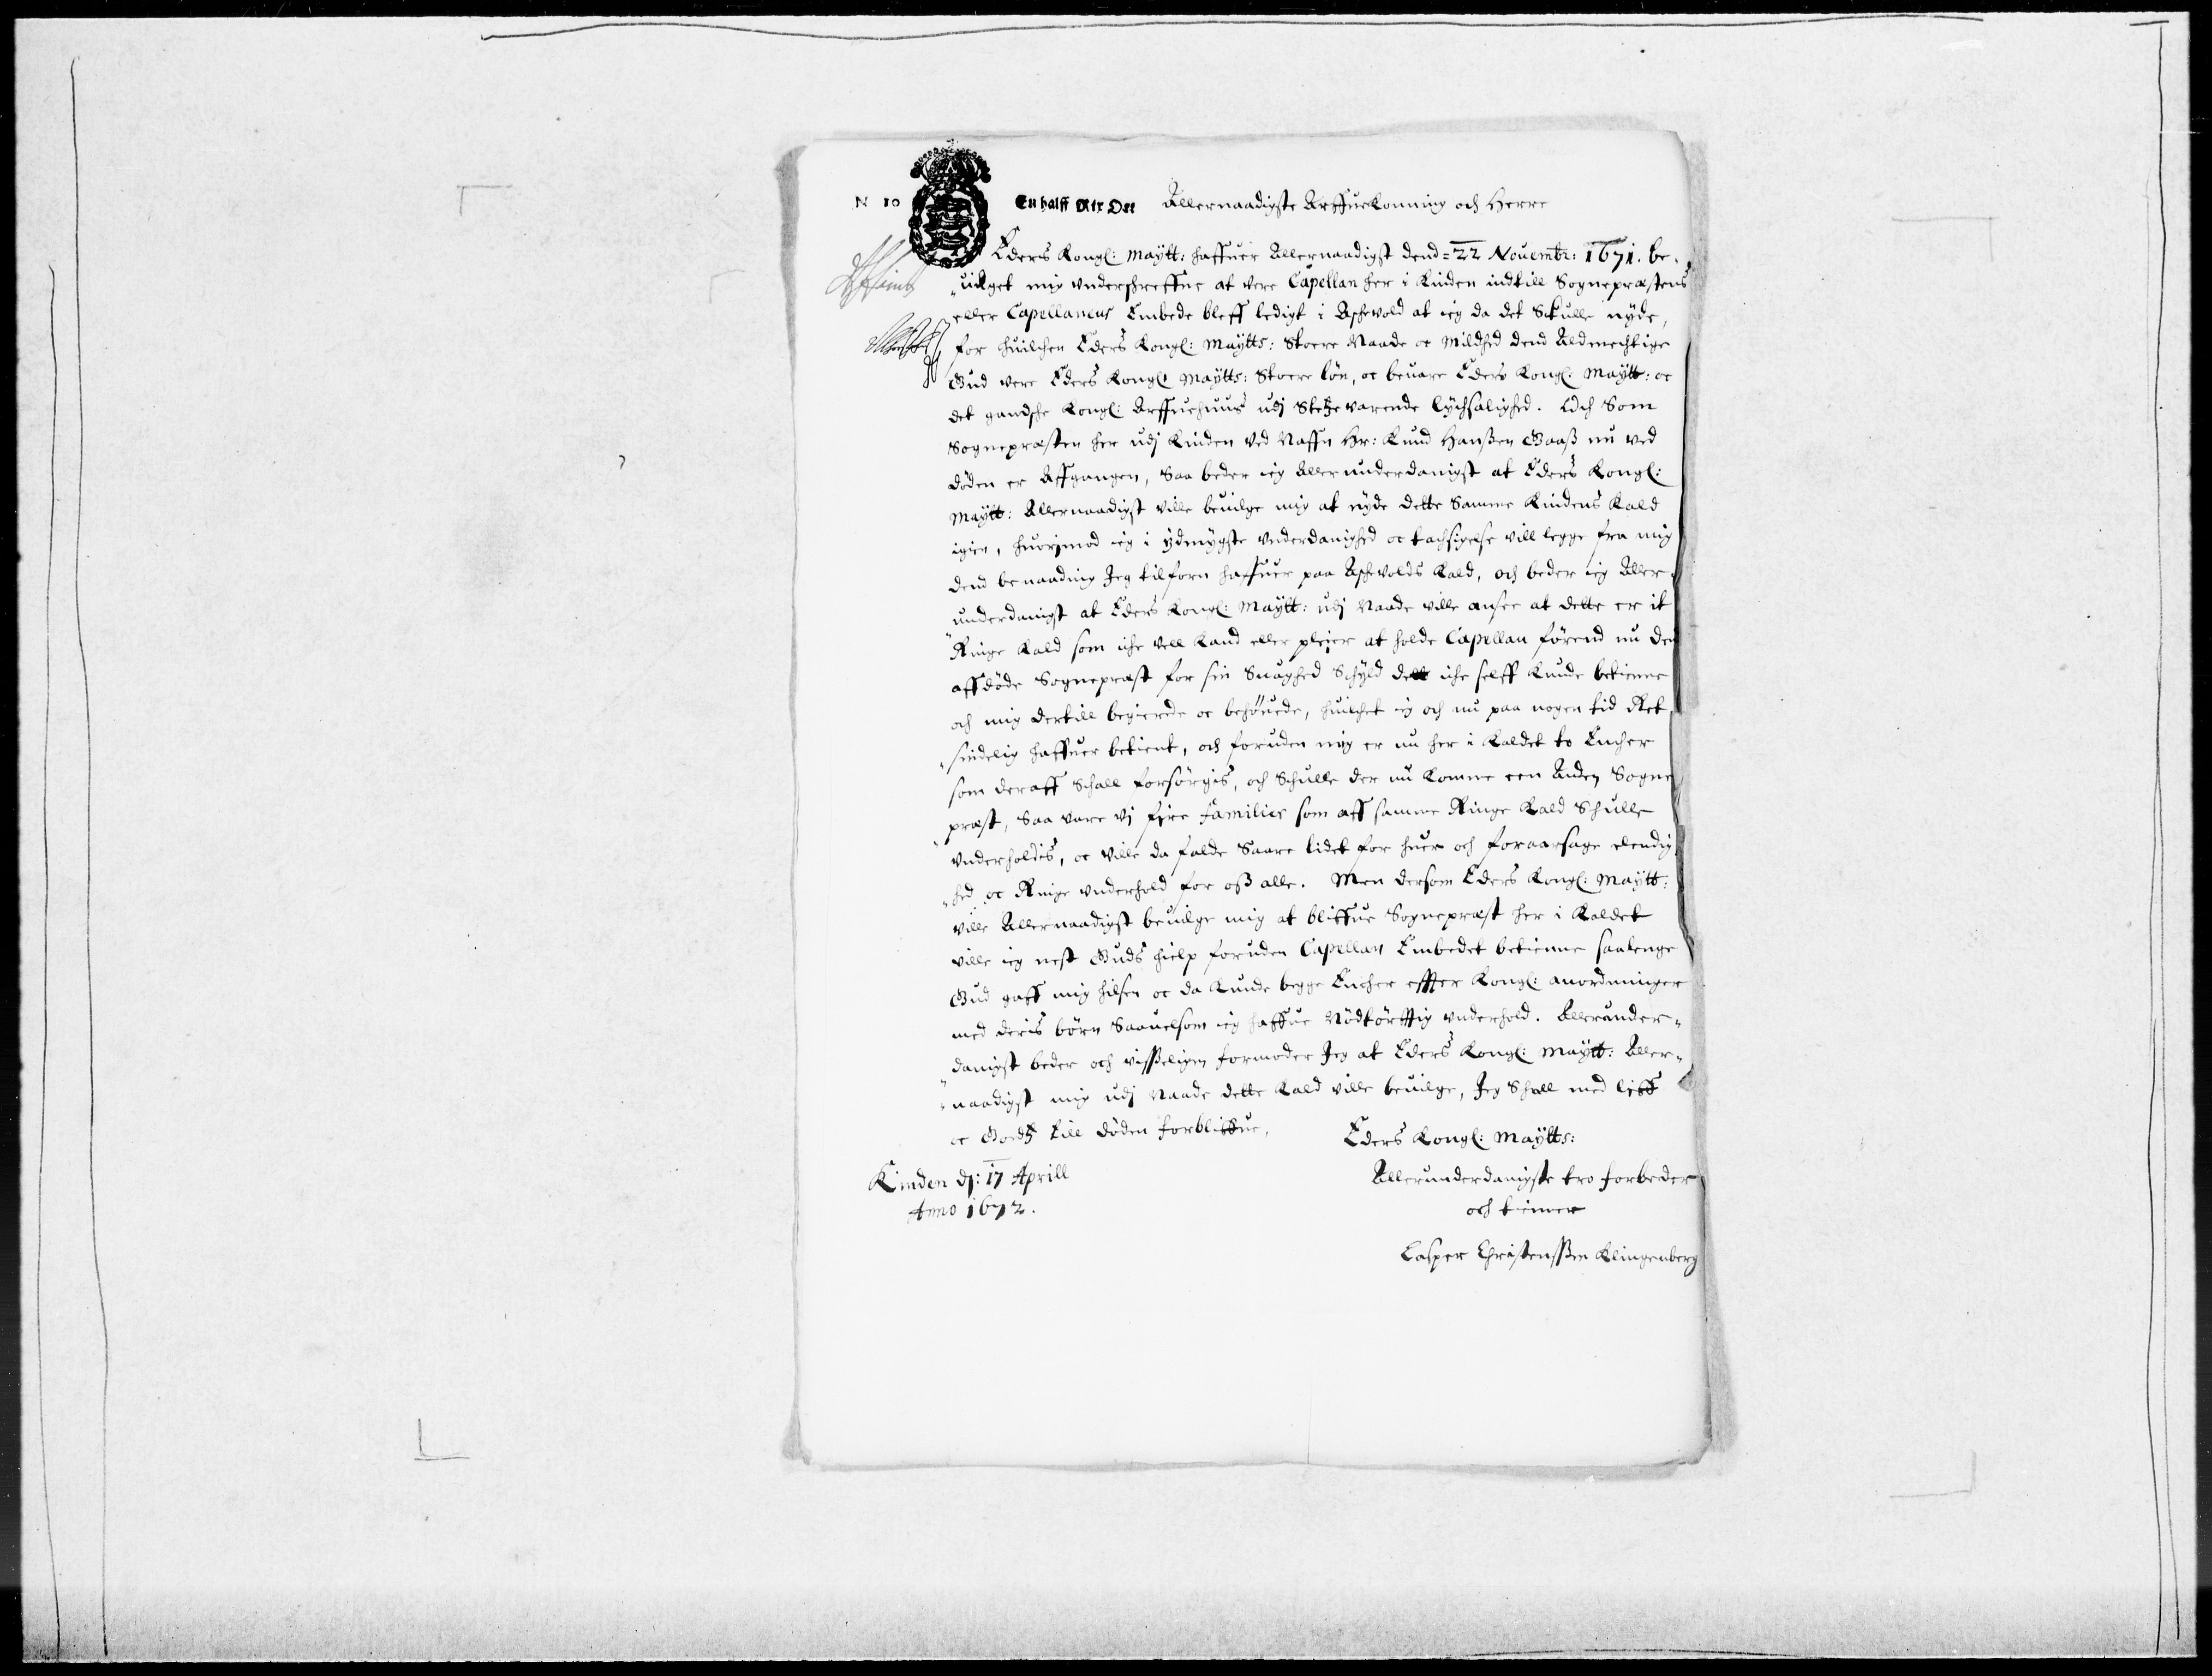 N 10 En halff Rix Ort Allernaadigste Arffuekonning och Herre
Eders Kongl: Maÿtt: haffuer Allernaadigst dend = 22 Nouembr: 1671. be-
uilget mig underschreffne at vere Capellan her i Kinden indtill Sognepræstens
eller Capellaneus Embede bleff ledigt i Aschevold at ieg da det Skulle nÿde,
for huilchen Eders Kongl: Maÿtts: Stoere Naade oc Mildhed dend Aldmechtige
Gud vere Eders Kongl: Maÿtts: Stoere løn, oc beuare Eders Kongl: Maÿtt: oc
det gandsche Kongl: Arffuehuus udj Stetzevarende lÿchsalighed. Och Som
Sognepræsten her udj Kinden ved Naffn Hr: Knud Hanßen Gaaß nu ved
døden er Affgangen, Saa beder ieg Allerunderdanigst at Eders Kongl:
Maÿtt: Allernaadigst ville beuilge mig at nÿde dette Samme Kindens Kald
igien, huorimod ieg i ÿdmÿgste underdanighed oc tachsigelse vill legge fra mig
dend benaading Jeg tilforn haffuer paa Aschevolds Kald, och beder ieg Aller-
underdanigst at Eders Kongl: Maÿtt: udj Naade ville ansee at dette er it
Ringe Kald som iche vell Kand eller pleier at holde Capellan førend nu den
affdøde Sogneprest for sin Suaghed Schÿld dett iche selff Kunde betienne
och mig dertill begierede oc behøuede, huilchet ieg och nu paa nogen tid Ret-
sindelig haffuer betient, och foruden mig er nu her i Kaldet to Encher
som deraff Schall forsørgis, och Schulle der nu komme een Anden Sogne
prest, Saa vare vj fire Familier som aff samme Ringe Kald Schulle
underholdis, oc ville da falde Saare lidet for huer och foraarsage elendig-
hed oc Ringe underhold for oß alle. Men dersom Eders Kongl: Maÿtt:
ville Allernaadigst beuilge mig at bliffue Sogneprest her i Kaldet
ville ieg nest Guds hielp foruden Capellan Embedet betienne saalenge
Gud gaff mig hilsen oc da Kunde begge Encher effter Kongl: anordninger
med deris børn Saauelsom ieg haffue Nødtørfftig underhold. Allerunder-
danigst beder och visseligen formoder Jeg at Eders Kongl: Maÿtt: Aller-
naadigst mig udj Naade dette Kald ville beuilge, Jeg Schall med liff
oc Godtz till døden forbliffue,
Eders Kongl: Maÿtts:
Kinden dj: 17 Aprill
Anno 1672.
Allerunderdanigste tro forbeder
och tienner
Casper Christenssen Klingenberg